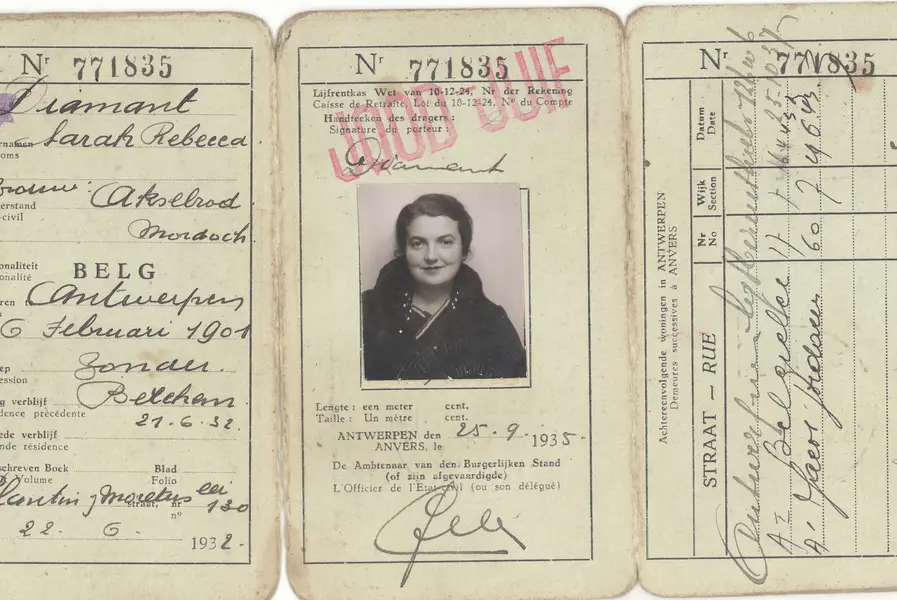 Nr 771835
Diamant
Sarah Rebecca
Akselrod
Mordoch
BELG
Antwerpen
6 Februari 1901
zonder.
Berchem
21-6-32.
dence précédente
ede verblijf
nde résidence
schreven Boek Blad
Volume Folio
Plantin Moretus lei
straat, nr 130
n°
22. 6. 1932-
Nr 771835
JOOD-JUIF
Lijfrentkas Wet van 10-12-24, Nr der Rekening
Caisse de Retraite, Loi du 10-12-24, N° du Compte
Handteeken des dragers:
Signature du porteur:
Diamant
Lengte: een meter cent.
Taille: Un mètre cent.
ANTWERPEN den 25-9-1935-
ANVERS, le
De Ambtenaar van den Burgerlijken Stand
(of zijn afgevaardigde)
L'Officier de l'Etat-civil (ou son délégué)
Nr 771835
Achtereenvolgende woningen in ANTWERPEN
Demeures successives à ANVERS
STRAAT — RUE
Nr
No
Wijk
Section
Datum
Date
Jacob Jordaens 60 7